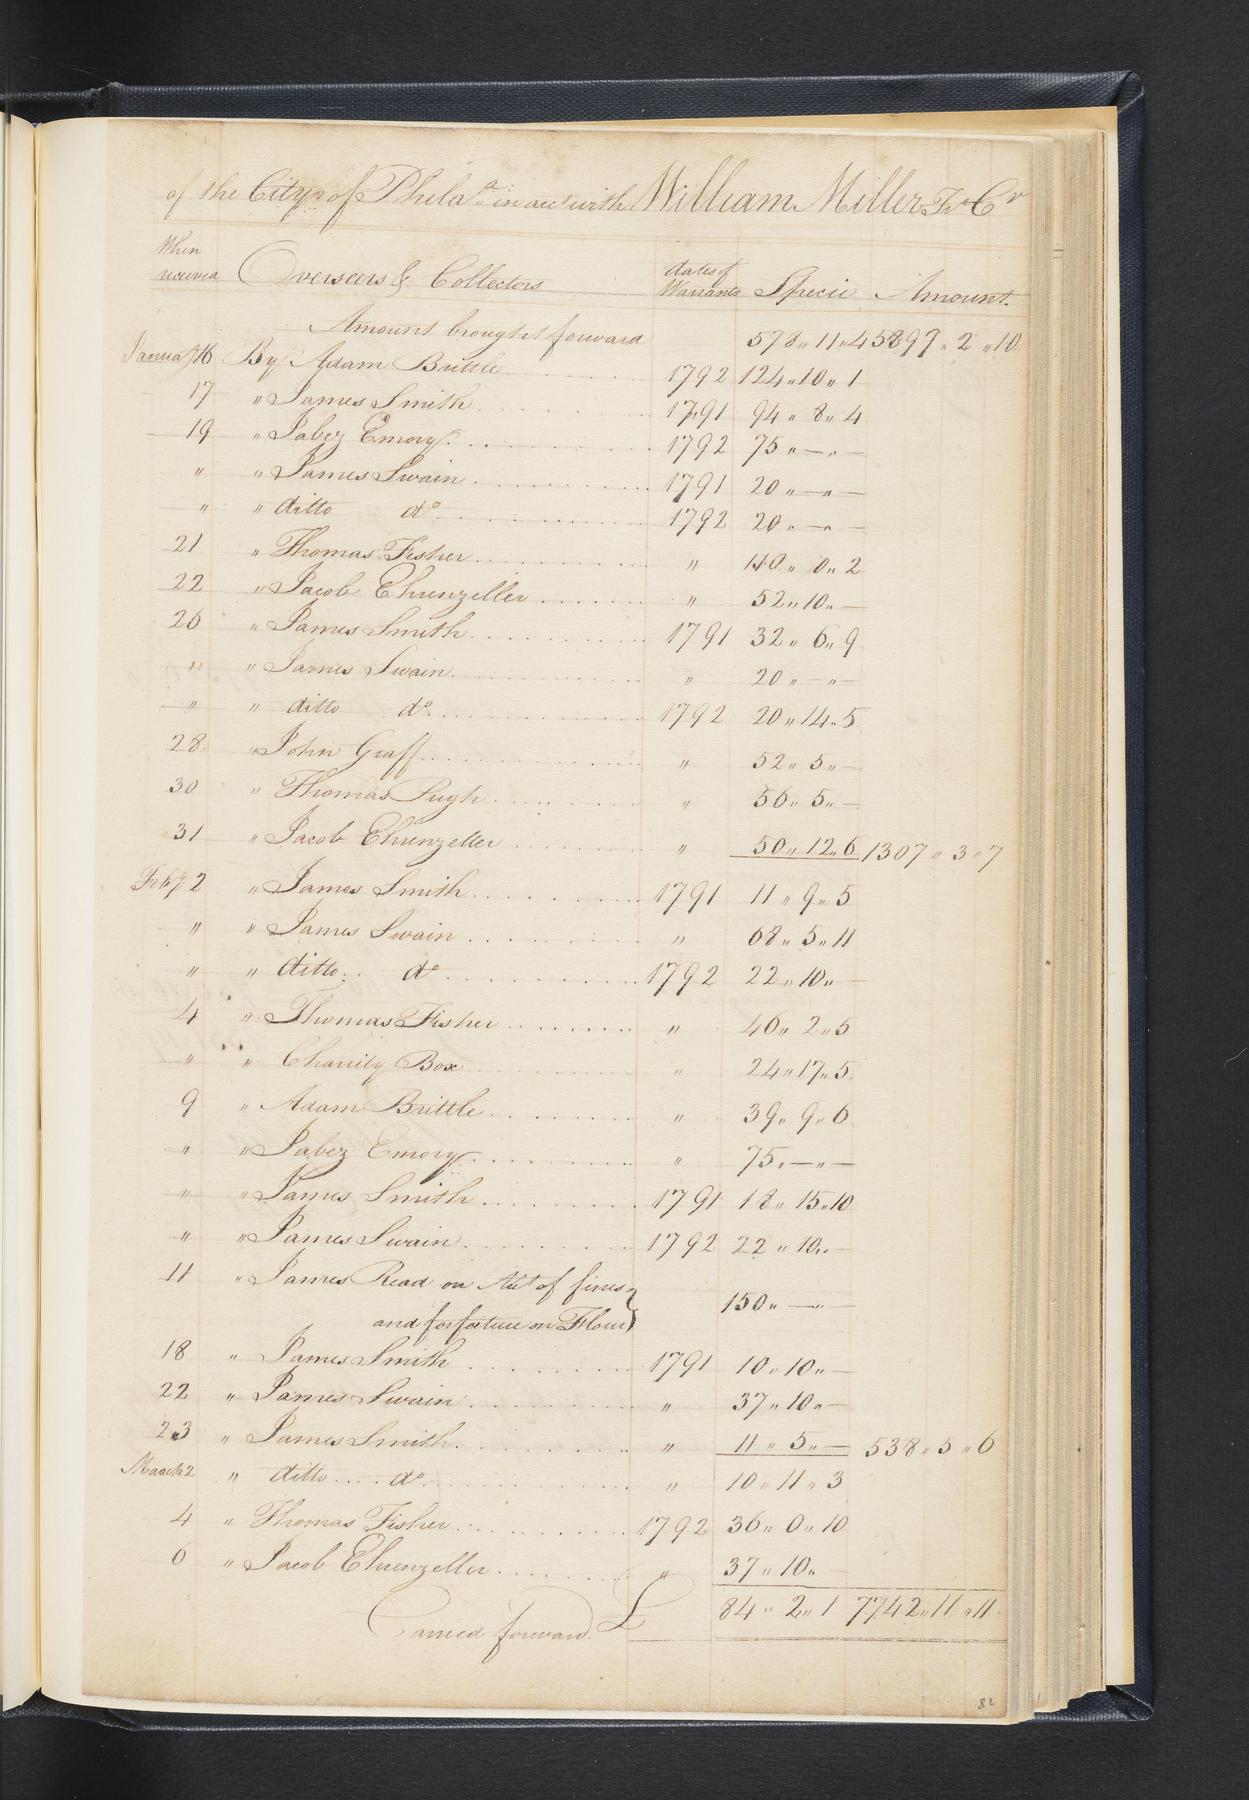 of the City of Philaᵃ in acct with William Miller Tr Cr
When
received Overseers & Collectors dates of
Warrants Specie Amount.
Amount brought forward 578 " 11 " 4 5897 " 2 " 10
January 16 By Adam Brittle 1792 124 " 10 " 1
17 " James Smith 1791 94 " 8 " 4
19 " Jabez Emory 1792 75 " — " —
" " James Swain 1791 20 " — " —
" " ditto do 1792 20 " — " —
21 " Thomas Fisher " 110 " 0 " 2
22 " Jacob Ehrenzeller " 52 " 10 " —
26 " James Smith 1791 32 " 6 " 9
" " James Swain " 20 " — " —
" " ditto do 1792 20 " 14 " 5
28 " John Graff " 52 " 5 " —
30 " Thomas Pugh " 56 " 5 " —
31 " Jacob Ehrenzeller " 50 " 12 " 6 1307 " 3 " 7
Feby 2 " James Smith 1791 11 " 9 " 5
" " James Swain " 68 " 5 " 11
" " ditto do 1792 22 " 10 " —
4 " Thomas Fisher " 46 " 2 " 5
" " Charity Box " 24 " 17 " 5
9 " Adam Brittle " 39 " 9 " 6
" " Jabez Emory " 75 " — " —
" " James Smith 1791 18 " 15 " 10
" " James Swain 1792 22 " 10 " —
11 " James Read on Acct of fines
and forfeiture on Flour 150 " — " —
18 " James Smith 1791 10 " 10 " —
22 " James Swain " 37 " 10 " —
23 " James Smith " 11 " 5 " — 538 " 5 " 6
March 2 " ditto do " 10 " 11 " 3
4 " Thomas Fisher 1792 36 " 0 " 10
6 " Jacob Ehrenzeller " 37 " 10 "
Carried forward £ 84 " 2 " 1 7742 " 11 " 11
82